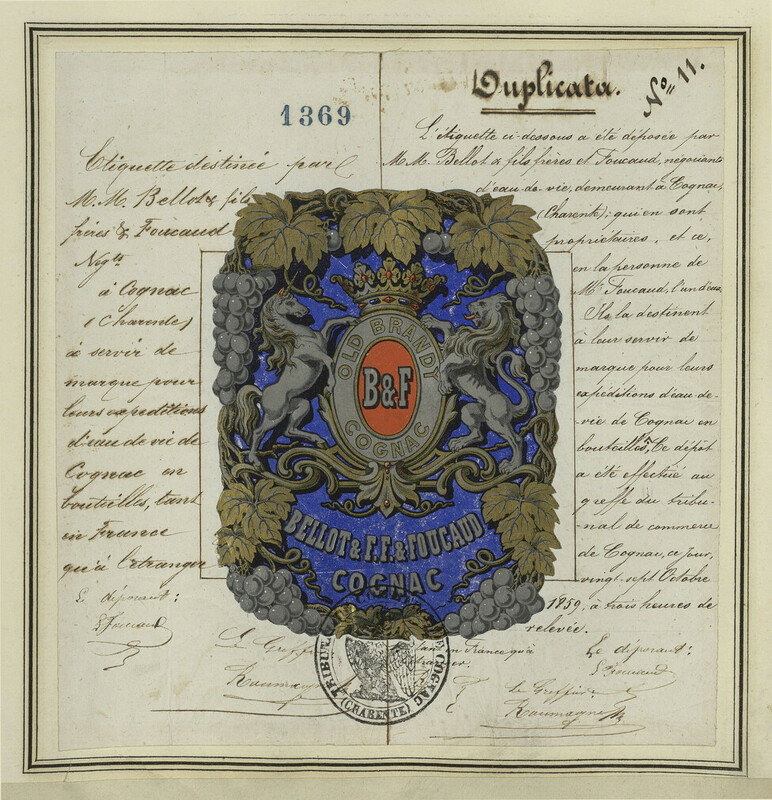 Duplicata.
No 11.
1369
Etiquette destinée par
M.M. Bellot & fils
frères & Foucaud
Negts
à Cognac
(Charente)
à servir de
marque pour
leurs expeditions
d'eau de vie de
Cognac en
bouteilles, tant
en France
qu'à l'etranger
Le déposant:
L'Etiquette ci-dessous a été déposée par
M.M. Bellot & fils frères et Foucaud, négociants
d'eau-de-vie, demeurant à Cognac,
(Charente); qui en sont
propriétaires, et ce,
en la personne de
Mr Foucaud, l'un d'eux.
Ils la destinent
à leur servir de
marque pour leurs
expéditions d'eau-de-
vie de Cognac en
bouteilles. Ce dépôt
a été effectué au
greffe du tribu-
nal de commerce
de Cognac, ce jour,
vingt-sept Octobre
1859, à trois heures de
relevée.
tant en France qu'à
OLD BRANDY
B&F
COGNAC
BELLOT & F.F. & FOUCAUD
COGNAC
Le Greffier
Roumagne
TRIBUT COGNAC
(CHARENTE)
Le déposant:
Foucaud
Le Greffier
Roumagne